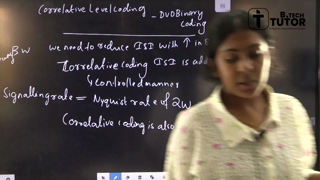 Correlative Level coding - DUOBinary
coding
B.TECH
TUTOR
BW
we need to reduce ISI with ↑ in B
Correlative coding ISI is a
controlled manner
Signalling rate = Nyquist rate of 2W
Correlative coding is also